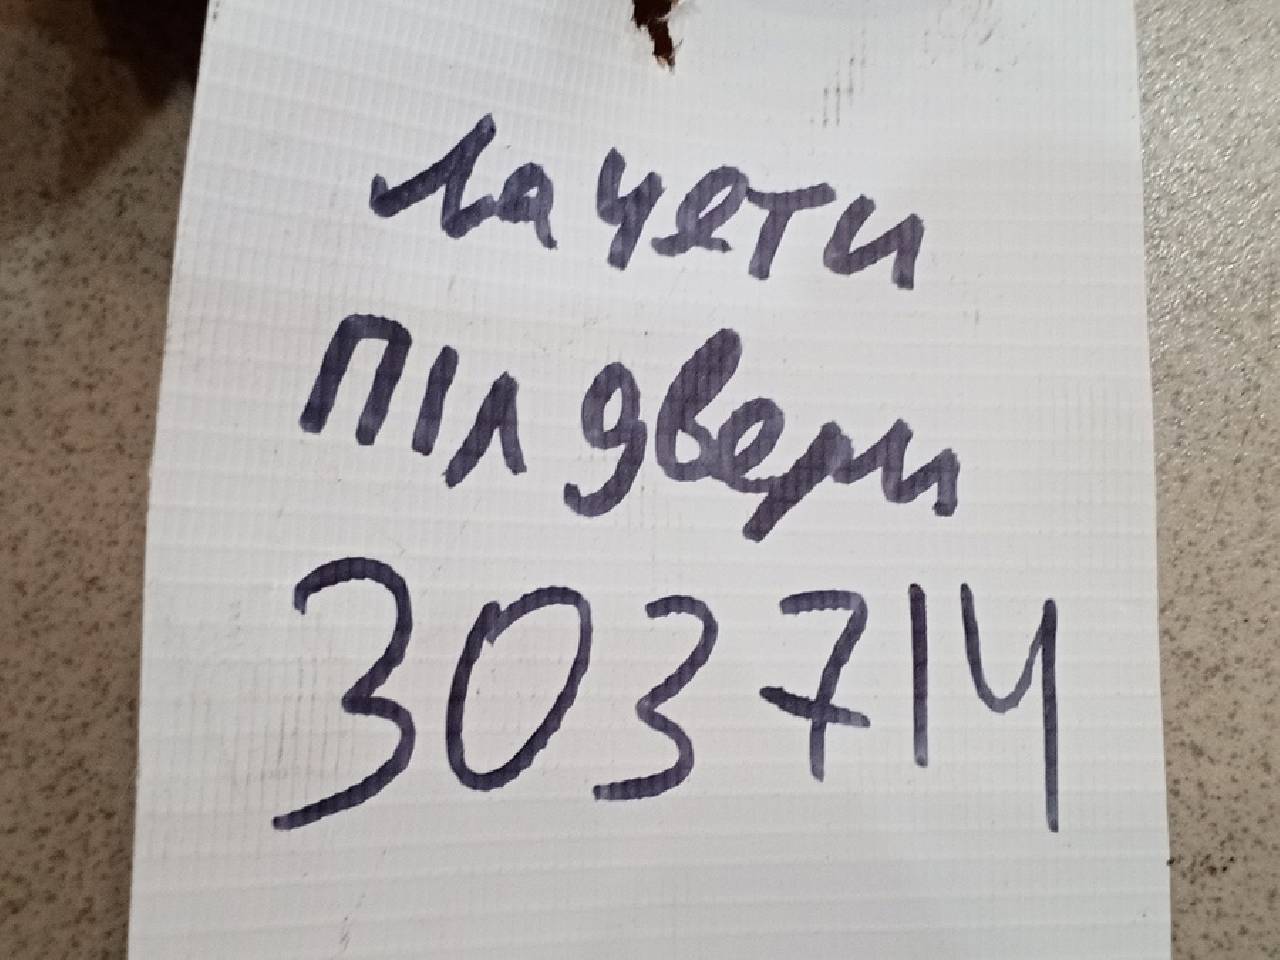 лачети
піл двери
303714